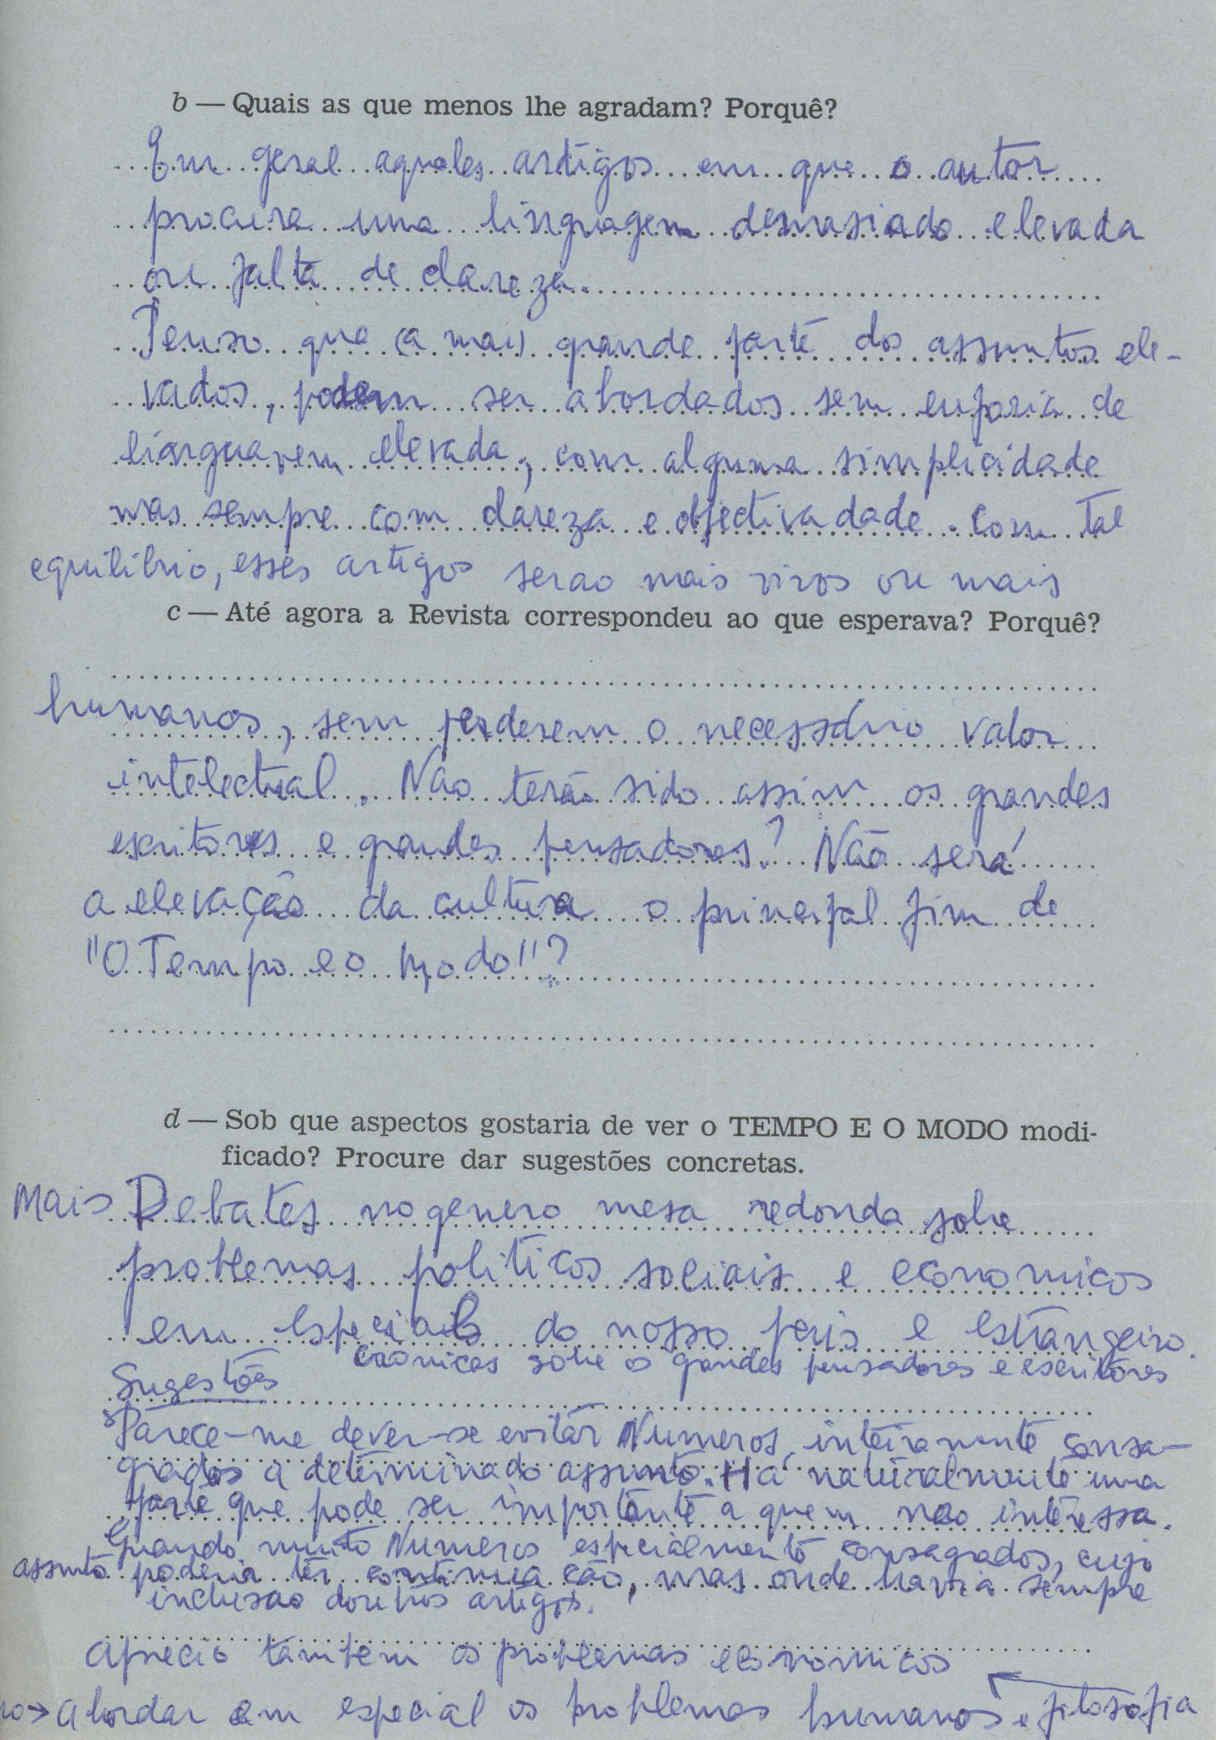 b — Quais as que menos lhe agradam? Porquê?
Em geral aqueles artigos em que o autor
procura uma linguagem demasiado elevada
ou falta de clareza.
Penso que a mais grande parte dos assuntos ele-
vados, podem ser abordados sem euforia de
linguagem elevada, com alguma simplicidade
mas sempre com clareza e objectividade. Com tal
equilibrio, esses artigos serão mais vivos ou mais
c — Até agora a Revista correspondeu ao que esperava? Porquê?
humanos, sem perderem o necessário valor
intelectual. Não terão sido assim os grandes
escritores e grandes pensadores? Não será
a elevação da cultura o principal fim de
"O Tempo e o Modo"?
d — Sob que aspectos gostaria de ver o TEMPO E O MODO modi-
ficado? Procure dar sugestões concretas.
Mais Debates no genero mesa redonda sobre
problemas politicos sociais e economicos
em especial do nosso pais e estrangeiro.
Crónicas sobre os grandes pensadores e escritores
Sugestões
Parece-me dever-se evitar Numeros inteiramente consa-
grados a determinado assunto. Há naturalmente uma
parte que pode ser importante a quem não interessa.
Quando muito Numeros especialmente consagrados, cujo
assunto poderia ter continuação, mas onde havia sempre
inclusão doutros artigos.
Aprecio também os problemas economicos
Abordar em especial os problemas humanos e filosofia